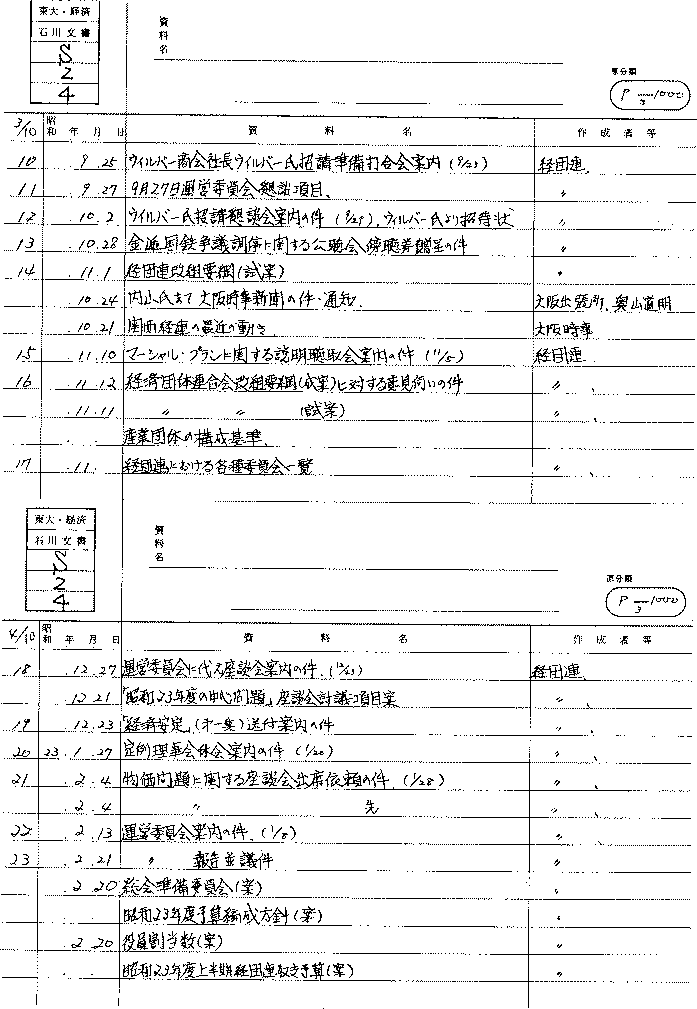 東大・経済
石川文書
S
2
4
資料名
原分類
P 3/1000
3/10 昭和 年 月 日 資料名 作成者等
10 . 9. 25 ウイルバー商会社長ウイルバー氏招請準備打合会案内(9/25) 経団連
11 . 9. 27 9月27日運営委員会懇談項目 〃
12 . 10. 2 ウイルバー氏招請懇談会案内の件(9/29), ウイルバー氏より招待状 〃
13 . 10. 28 全逓国鉄争議調停に関する公聴会傍聴券贈呈の件 〃
14 . 11. 1 経団連改組要綱(試案) 〃
10. 24 内山氏宛て大阪時事新聞の件・通知 大阪出張所、奥山直明
10. 21 関西経連の最近の動き 大阪時事
15 . 11. 10 マーシャル・プランに関する説明聴取会案内の件(11/15) 経団連
16 . 11. 12 経済団体連合会改組要綱(試案)に対する意見伺いの件 〃
. 11. 11 〃 〃 (試案) 〃
産業団体の構成基準
17 . 11. 経団連における各種委員会一覧 〃
東大・経済
石川文書
S
2
4
資料名
原分類
P 3/1000
4/10 昭和 年 月 日 資料名 作成者等
18 . 12. 27 運営委員会に代る座談会案内の件 (12/25) 経団連
12 21 「昭和23年度の中心問題」座談会討議項目案 〃
19 . 12. 23 「経済安定」(第一集)送付案内の件 〃
20 23. 1. 27 定例理事会休会案内の件 (1/20) 〃
21 . 2. 4 物価問題に関する座談会出席依頼の件 (1/28) 〃
. 2. 4 〃 先 〃
22 . 2. 13 運営委員会案内の件 〃
23 . 2. 21 〃 報告並議件 〃
. 2. 20 総会準備委員会(案) 〃
昭和23年度予算編成方針(案) 〃
. 2. 20 役員割当数(案) 〃
昭和23年度上半期経団連収支予算(案) 〃